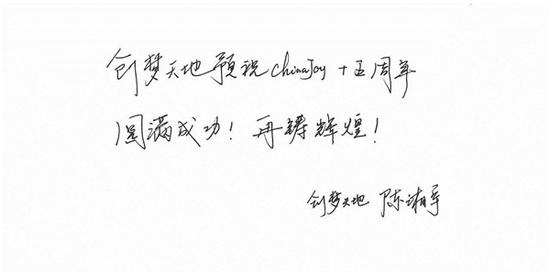 创梦天地预祝chinaJoy十五周年
圆满成功！再铸辉煌！
创梦天地 陈湘宇